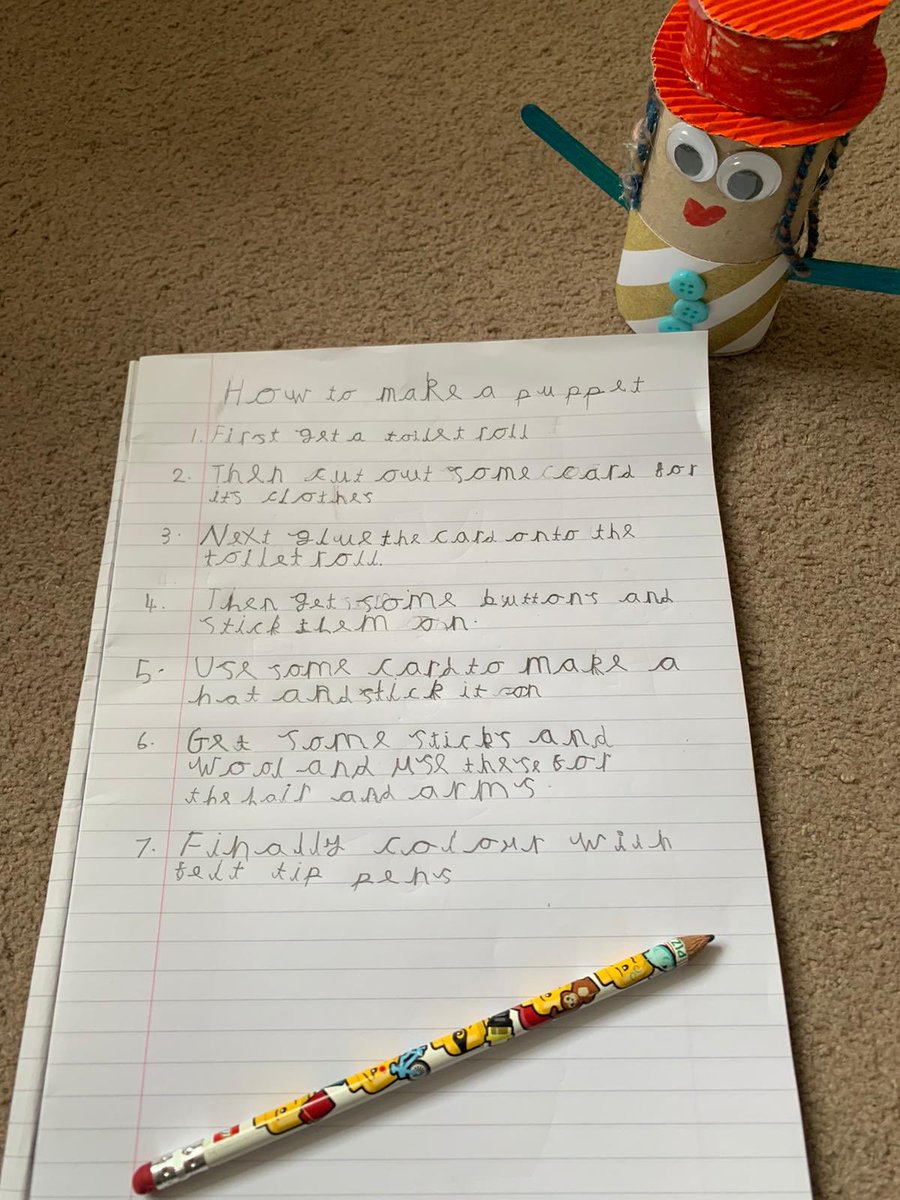 How to make a puppet
1. First get a toilet roll
2. Then cut out some card for
its clothes
3. Next glue the card onto the
toilet roll.
4. Then get some buttons and
stick them on.
5. Use some card to make a
hat and stick it on
6. Get some sticks and
wool and use these for
the hair and arms.
7. Finally colour with
felt tip pens